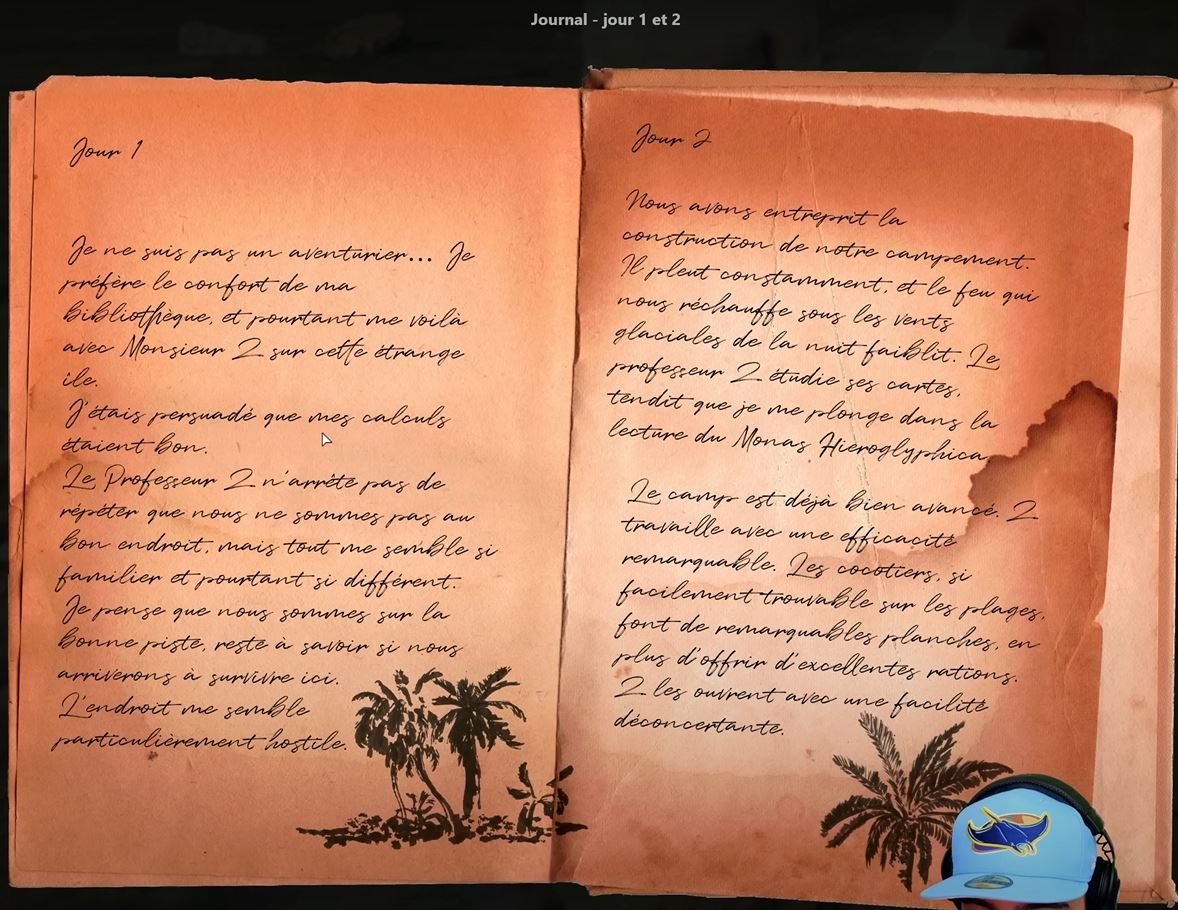 Journal - jour 1 et 2
Jour 1
Je ne suis pas un aventurier... Je
préfère le confort de ma
bibliothèque, et pourtant me voilà
avec Monsieur Z sur cette étrange
île.
J'étais persuadé que mes calculs
étaient bon.
Le Professeur Z n'arrête pas de
répéter que nous ne sommes pas au
bon endroit, mais tout me semble si
familier et pourtant si différent.
Je pense que nous sommes sur la
bonne piste, reste à savoir si nous
arriverons à survivre ici.
L'endroit me semble
particulièrement hostile.
Jour 2
Nous avons entreprit la
construction de notre campement.
Il pleut constamment, et le feu qui
nous réchauffe sous les vents
glaciales de la nuit faiblit. Le
professeur Z étudie ses cartes,
tendit que je me plonge dans la
lecture du Monas Hieroglyphica.
Le camp est déjà bien avancé. Z
travaille avec une efficacité
remarquable. Les cocotiers, si
facilement trouvable sur les plages,
font de remarquables planches, en
plus d'offrir d'excellentes rations.
Z les ouvrent avec une facilité
déconcertante.